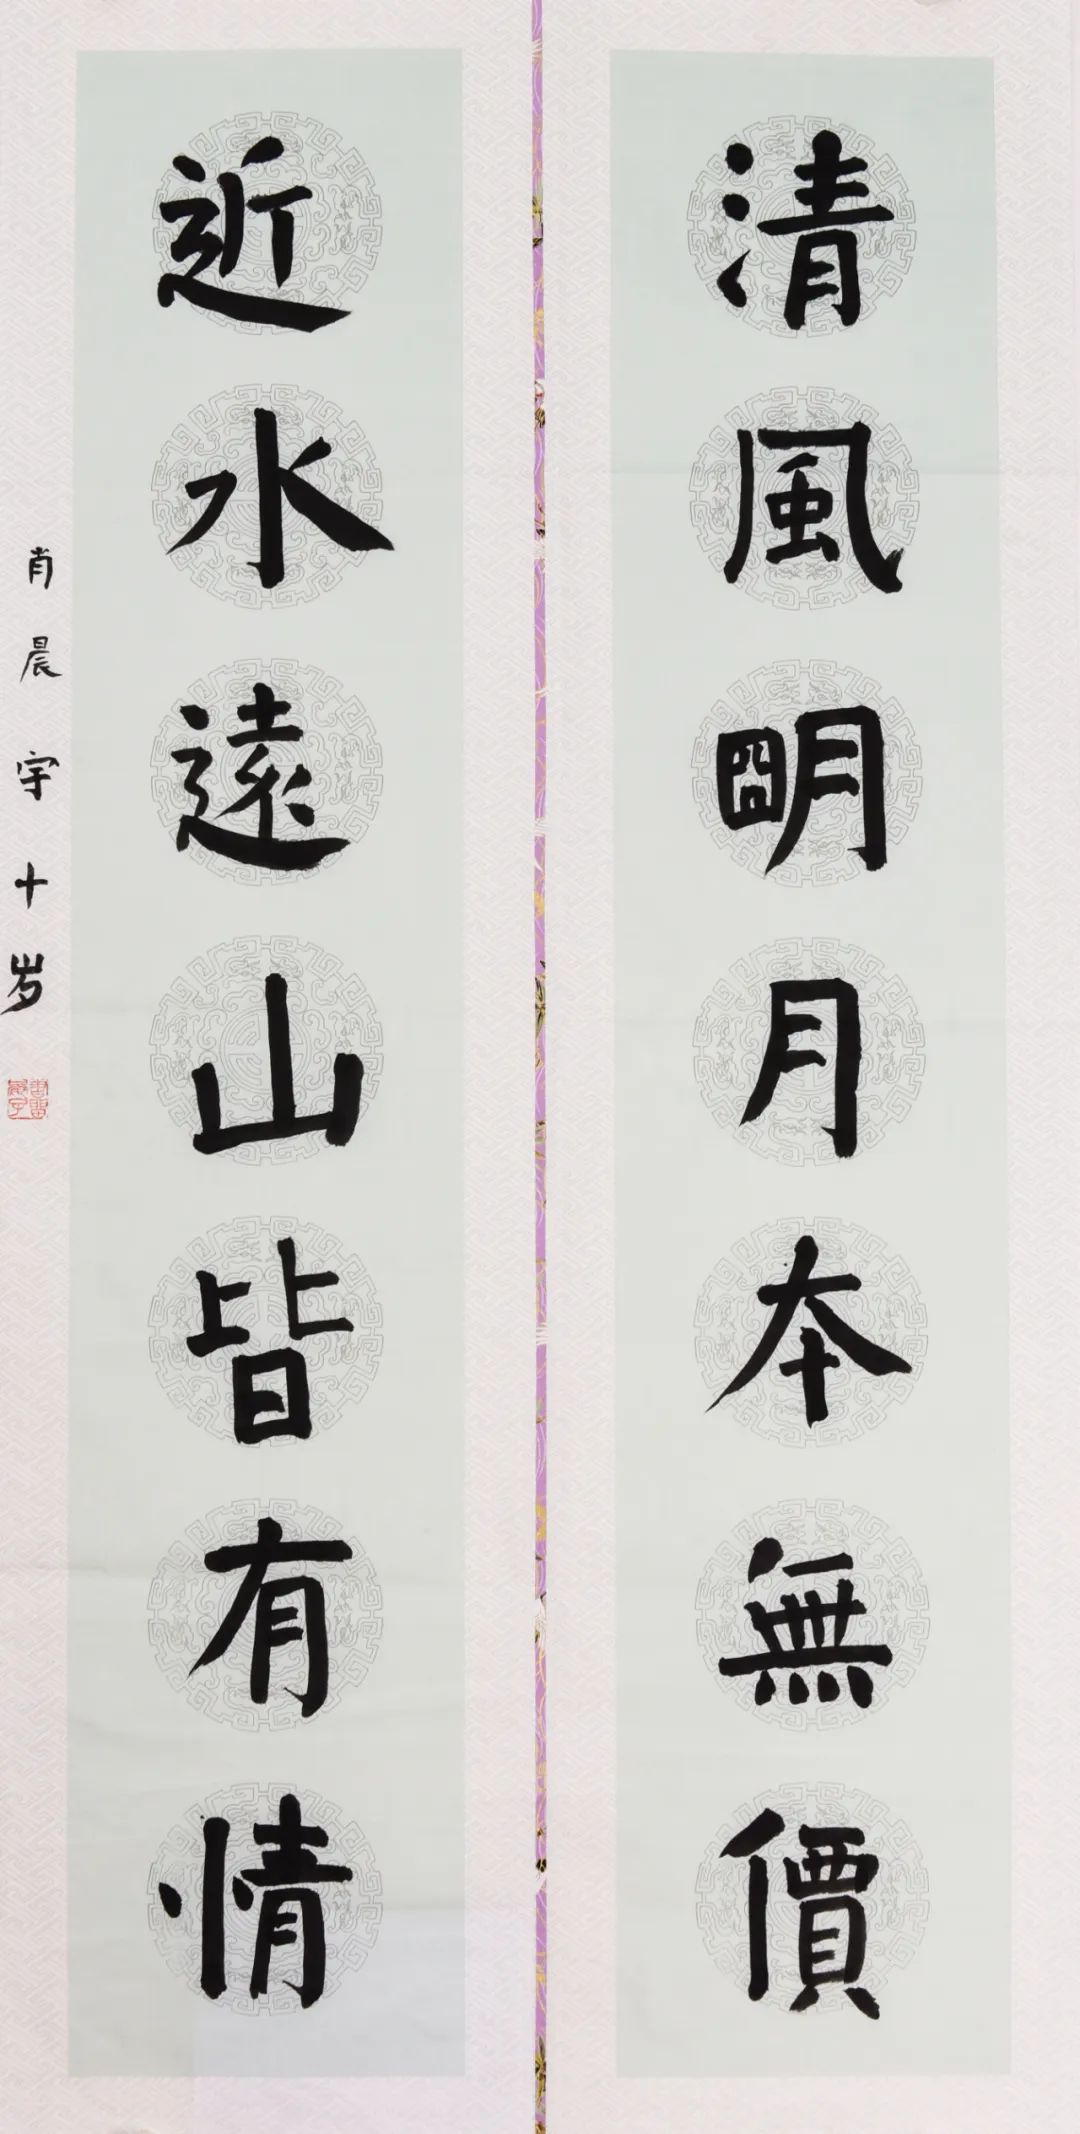 清風明月本無價
近水遠山皆有情
肖晨宇十岁